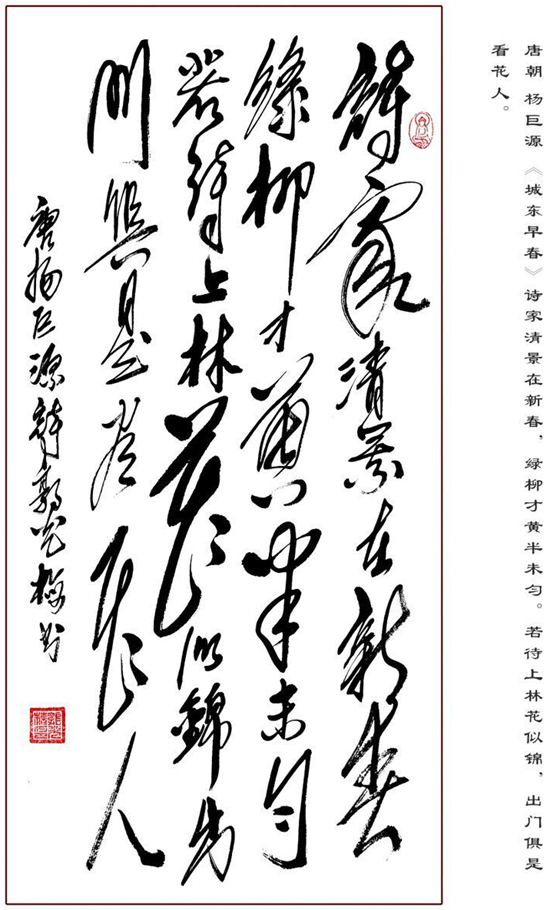 唐朝 杨巨源 《城东早春》诗家清景在新春，绿柳才黄半未匀。若待上林花似锦，出门俱是
看花人。
詩家清景在新春
綠柳才黄半未匀
若待上林花似錦出
门俱是看花人
唐杨巨源詩郭光书